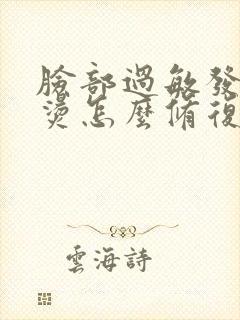 臉部過敏發
燙怎麼脩復
雲海詩